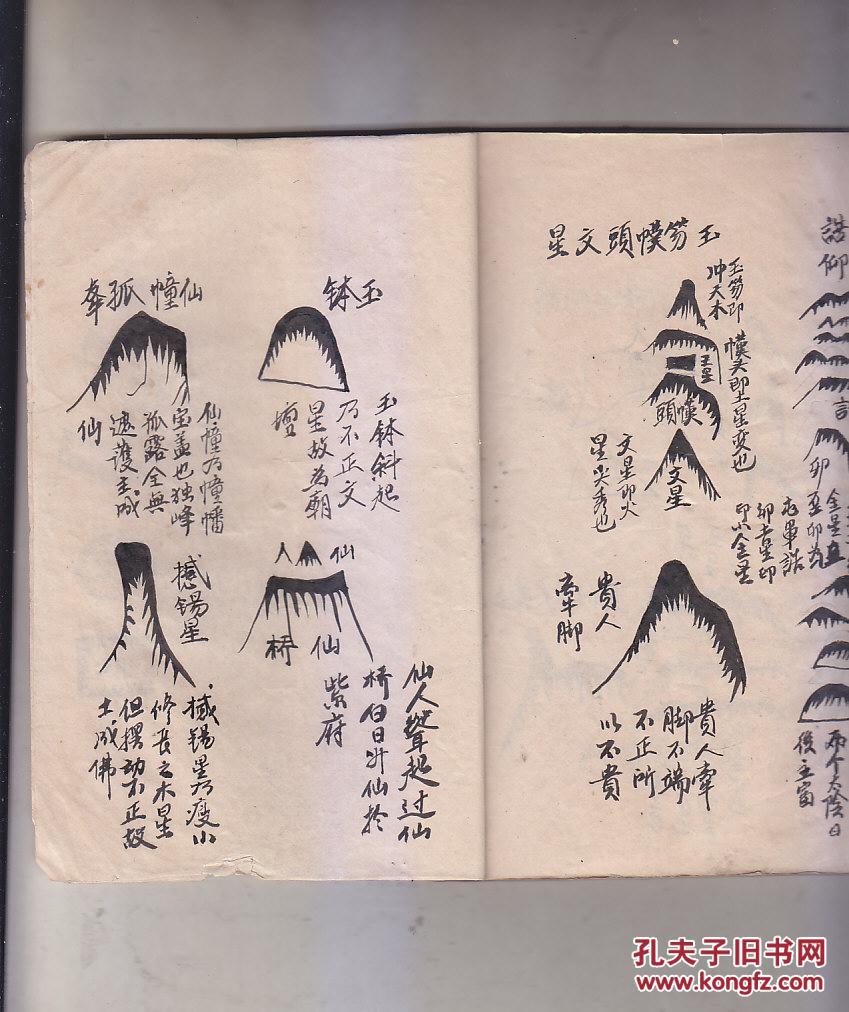 誥仰
言
卯
两个太陰日
後主富
玉笏幞頭文星
玉笏即
冲天木
幞头即土星变也
玉星
幞頭
文星
文星即火
星尖秀也
貴人
牽脚
貴人牽
脚不端
不正所
以不貴
玉钵
玉钵斜起
乃不正文
星故为朝
壇
仙幢孤峯
仙幢乃幢幡
宝盖也独峰
孤露全無
遮護主成
仙
仙人
仙桥
仙人聳起过仙
桥白日升仙於
紫府
撼锡星
撼锡星乃瘦小
修長之木星
但摆动不正故
主成佛
孔夫子旧书网
www.kongfz.com